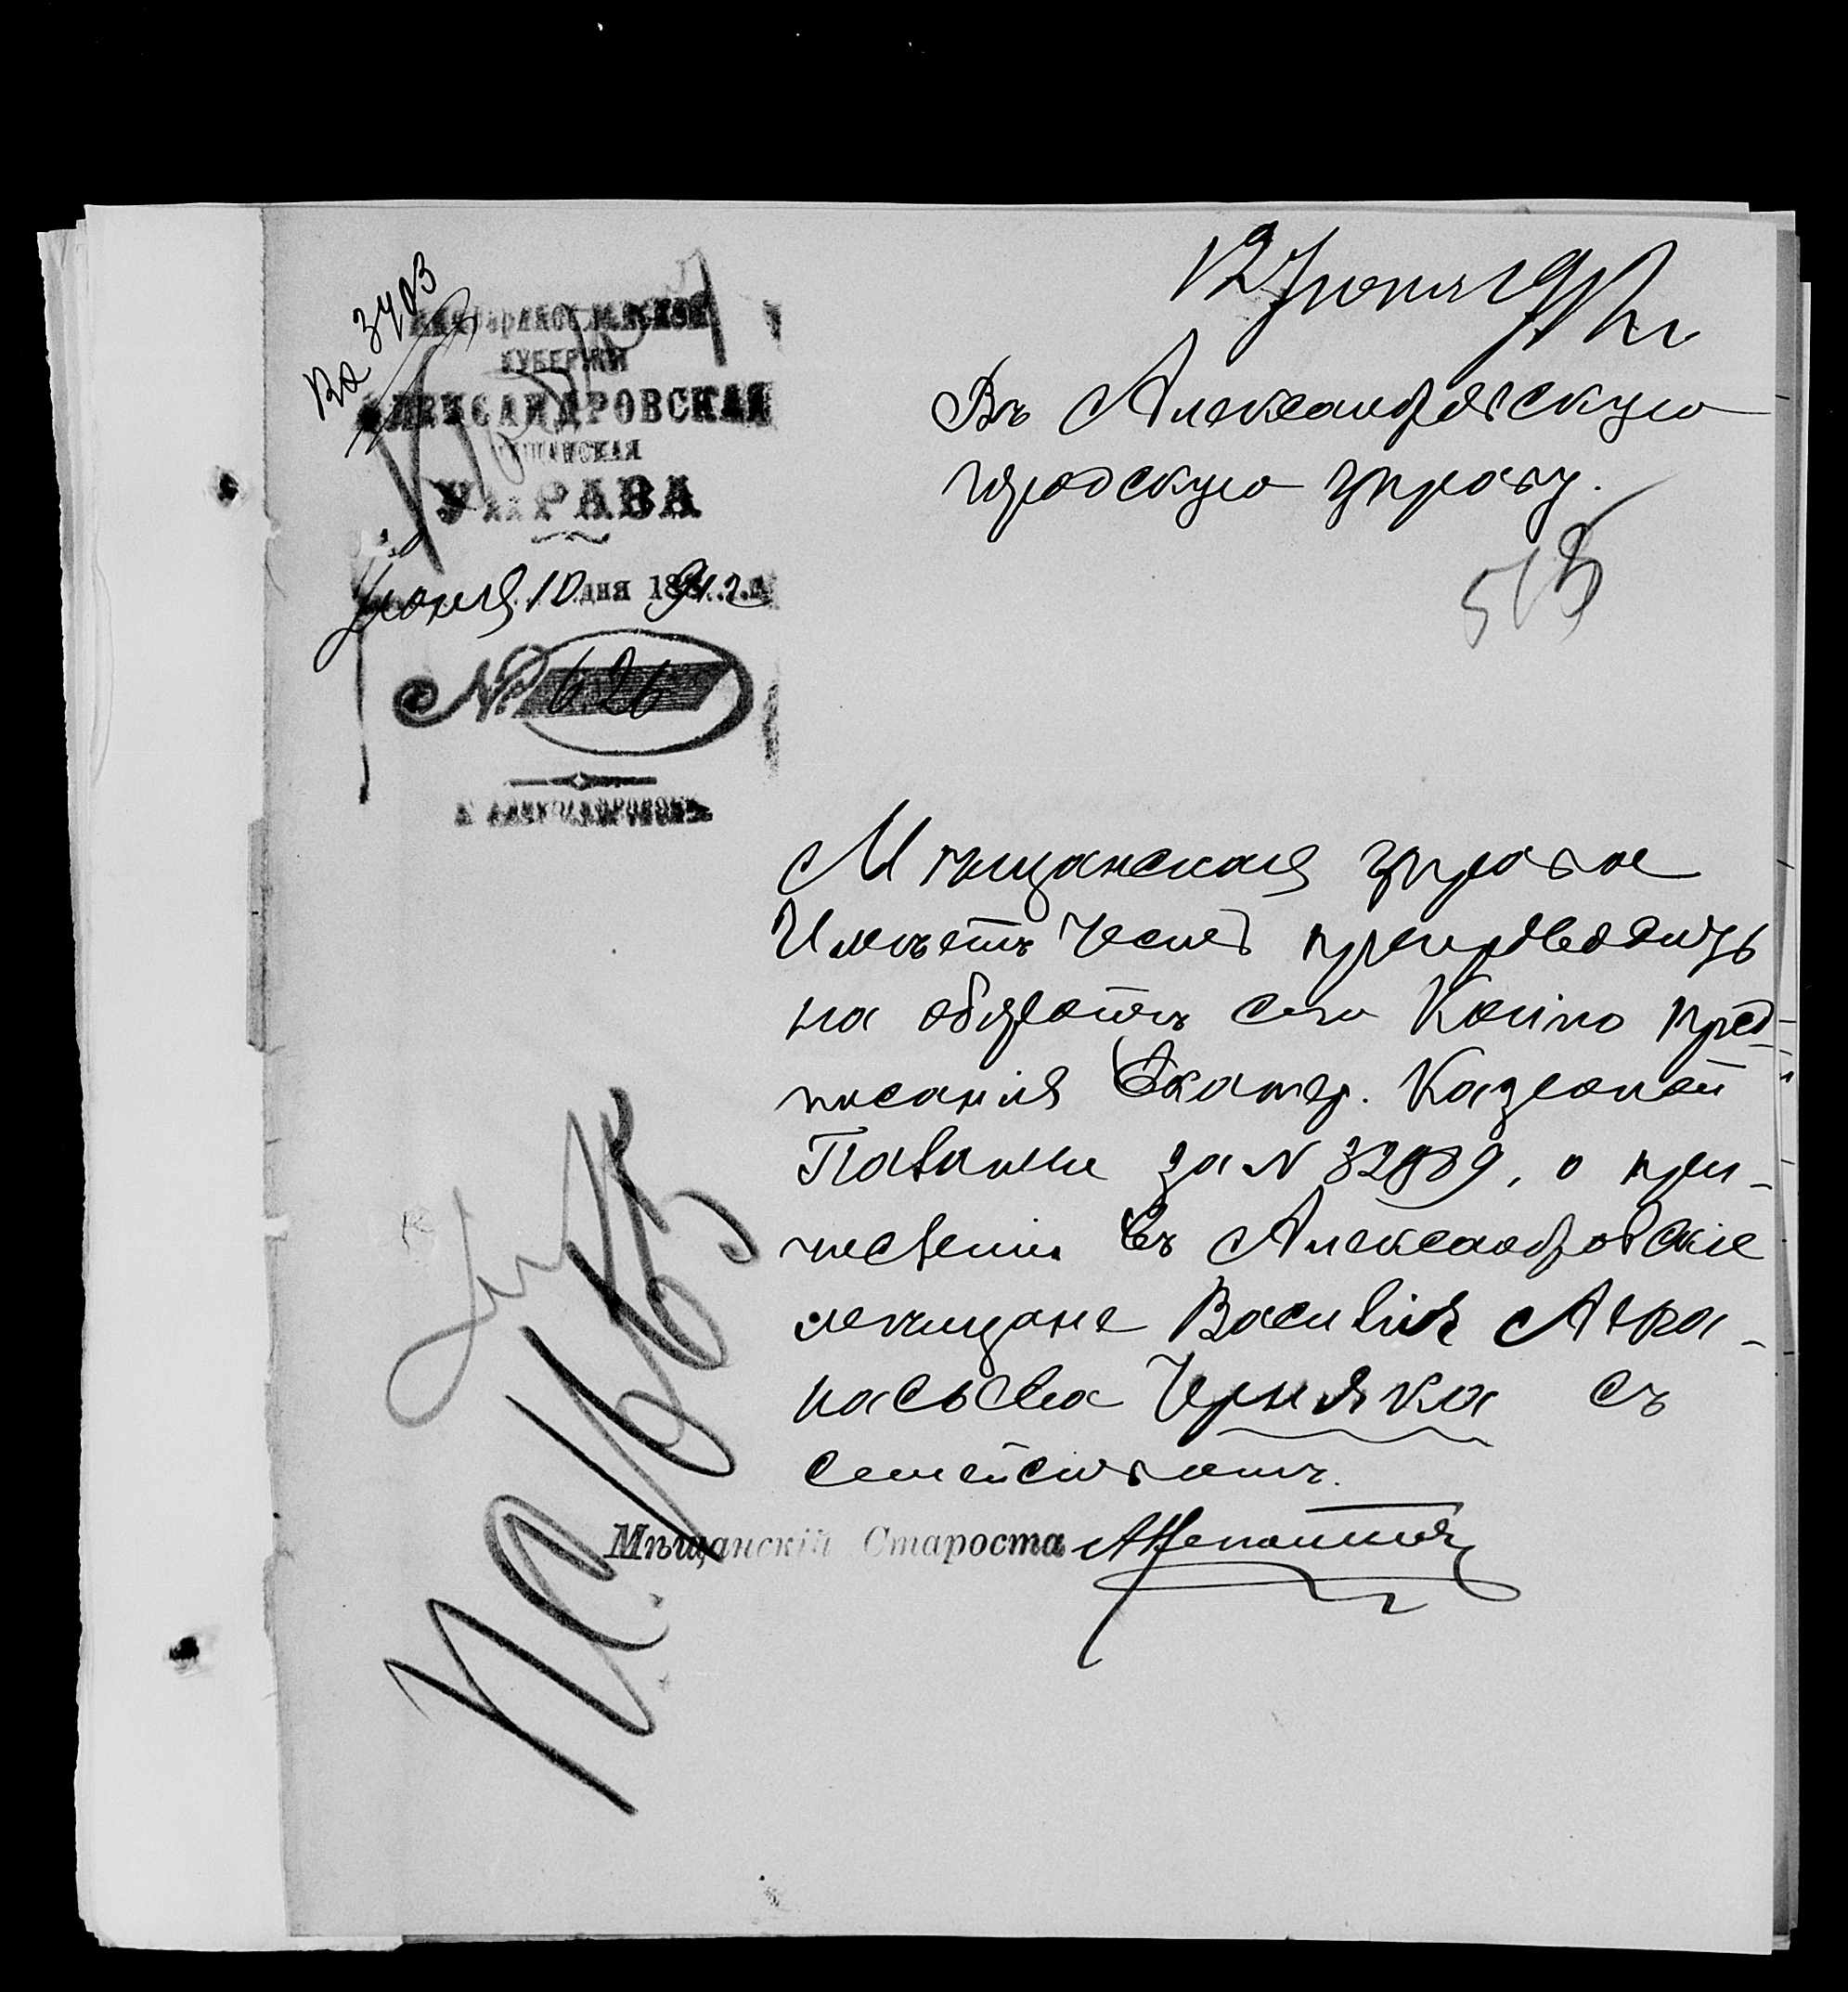 Вх 3403
ЕКАТЕРИНОСЛАВСКОЙ
ГУБЕРНІИ
АЛЕКСАНДРОВСКАЯ
МѢЩАНСКАЯ
УПРАВА
Іюня 10 дня 1891 г.
№ 626
Г. АЛЕКСАНДРОВСКЪ
12 Іюня 91 г
Въ Александровскую
городскую управу.
513
Мѣщанская управа
Имѣетъ честь препроводить
на оборотѣ сего Копію пред-
писанія Екатер. Казенной
Палаты за № 32889, о при-
численіи въ Александровскіе
мѣщане Василія Афа-
насьева Черняка съ
семействомъ.
Мѣщанскій Староста